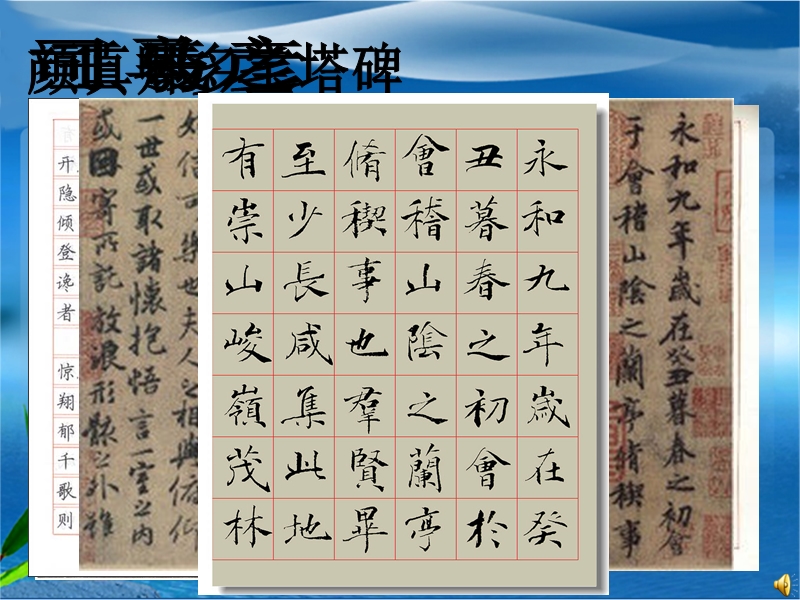 颜真多塔碑
永和九年歲在癸丑暮春之初會
于會稽山陰之蘭亭脩稧事
永和九年歲在癸
丑暮春之初會於
會稽山陰之蘭亭
脩稧事也羣賢畢
至少長咸集此地
有崇山峻嶺茂林
信可樂也夫人之相與俯仰
一世或取諸懷抱悟言一室之內
或因寄所託放浪形骸之外雖
开隐倾登谗者
惊翔郁千歌则